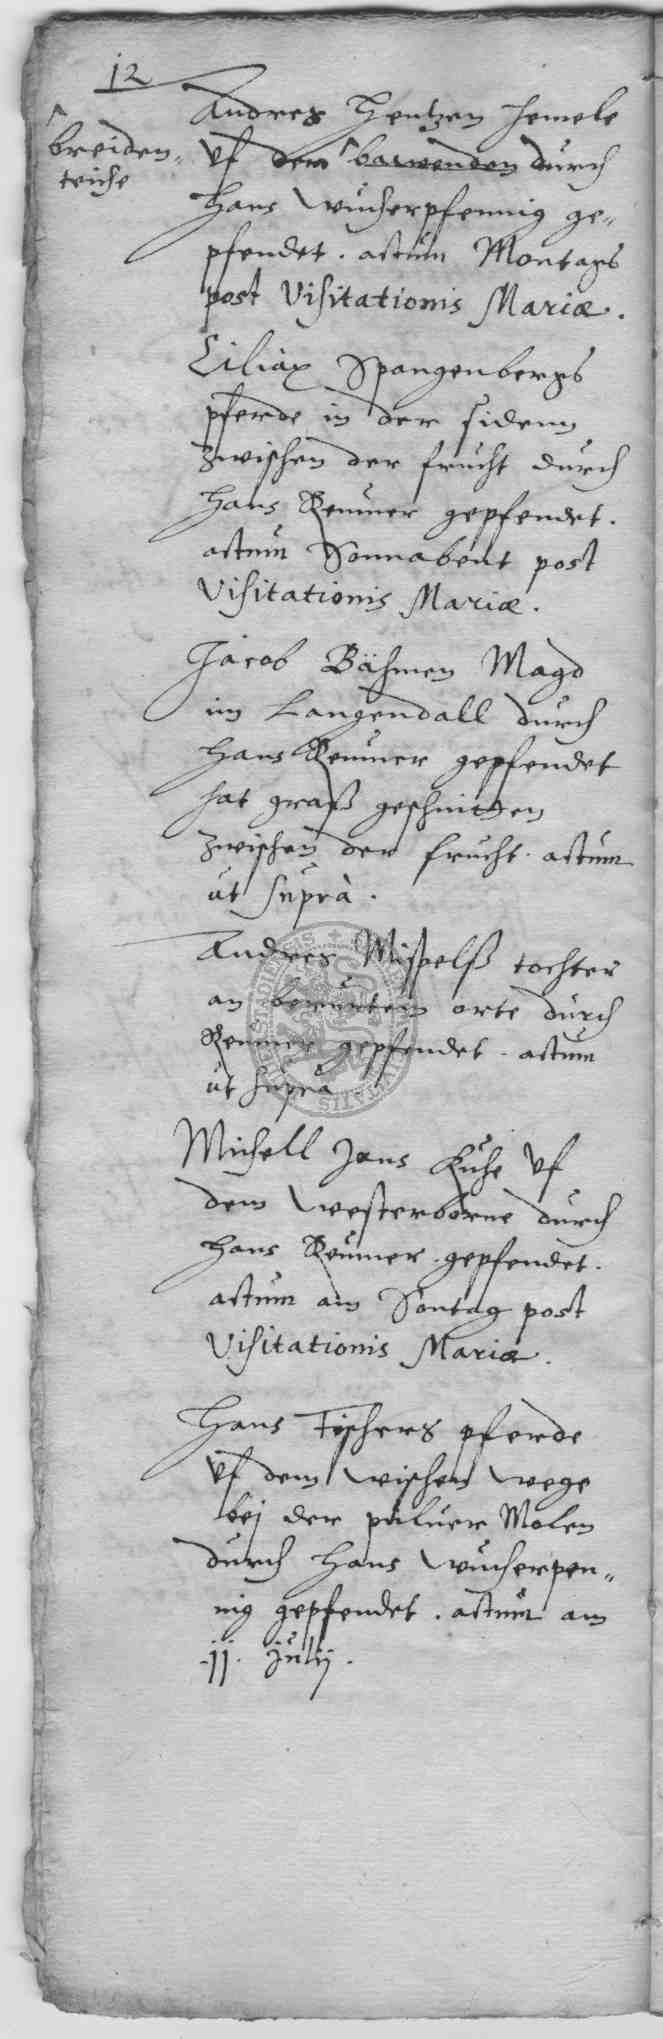 12
Andres Hentzen hemele
breiden-
teiche
uf dem barwenden durch
Hans Wucherpfennig ge-
pfendet. actum Montags
post Visitationis Mariæ.
Ciliax Spangenbergs
pferde in der sidenn
zwischen der frucht durch
Hans Remmer gepfendet.
actum Sonnabent post
Visitationis Mariæ.
Jacob Bähmen Magd
im Langendall durch
Hans Remmer gepfendet
hat graß geschnitten
zwischen der frucht. actum
ut suprà.
Andres Mispelß tochter
an berürtem orte durch
Remmer gepfendet. actum
ut supra
Michell Jans Kuhe uf
dem Westerborne durch
Hans Remmer gepfendet.
actum am Sontag post
Visitationis Mariæ.
Hans Fischers pferde
uf dem wischen wege
bej der puluer Molen
durch Hans Wucherpen-
nig gepfendet. actum am
.jj. Julij.